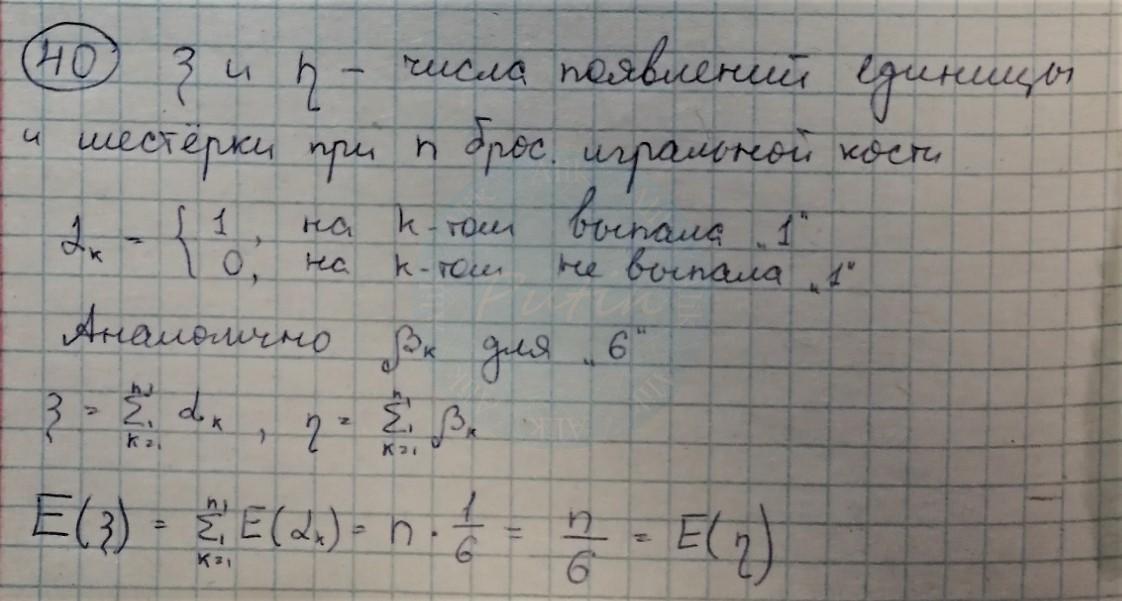 40 ξ и η – числа появлений единицы
и шестёрки при n брос. игральной кости
α_k = { 1, на k-том выпала „1“
0, на k-том не выпала „1“
Аналогично β_k для „6“
ξ = ∑_{k=1}^{n} α_k , η = ∑_{k=1}^{n} β_k
E(ξ) = ∑_{k=1}^{n} E(α_k) = n · 1/6 = n/6 = E(η)